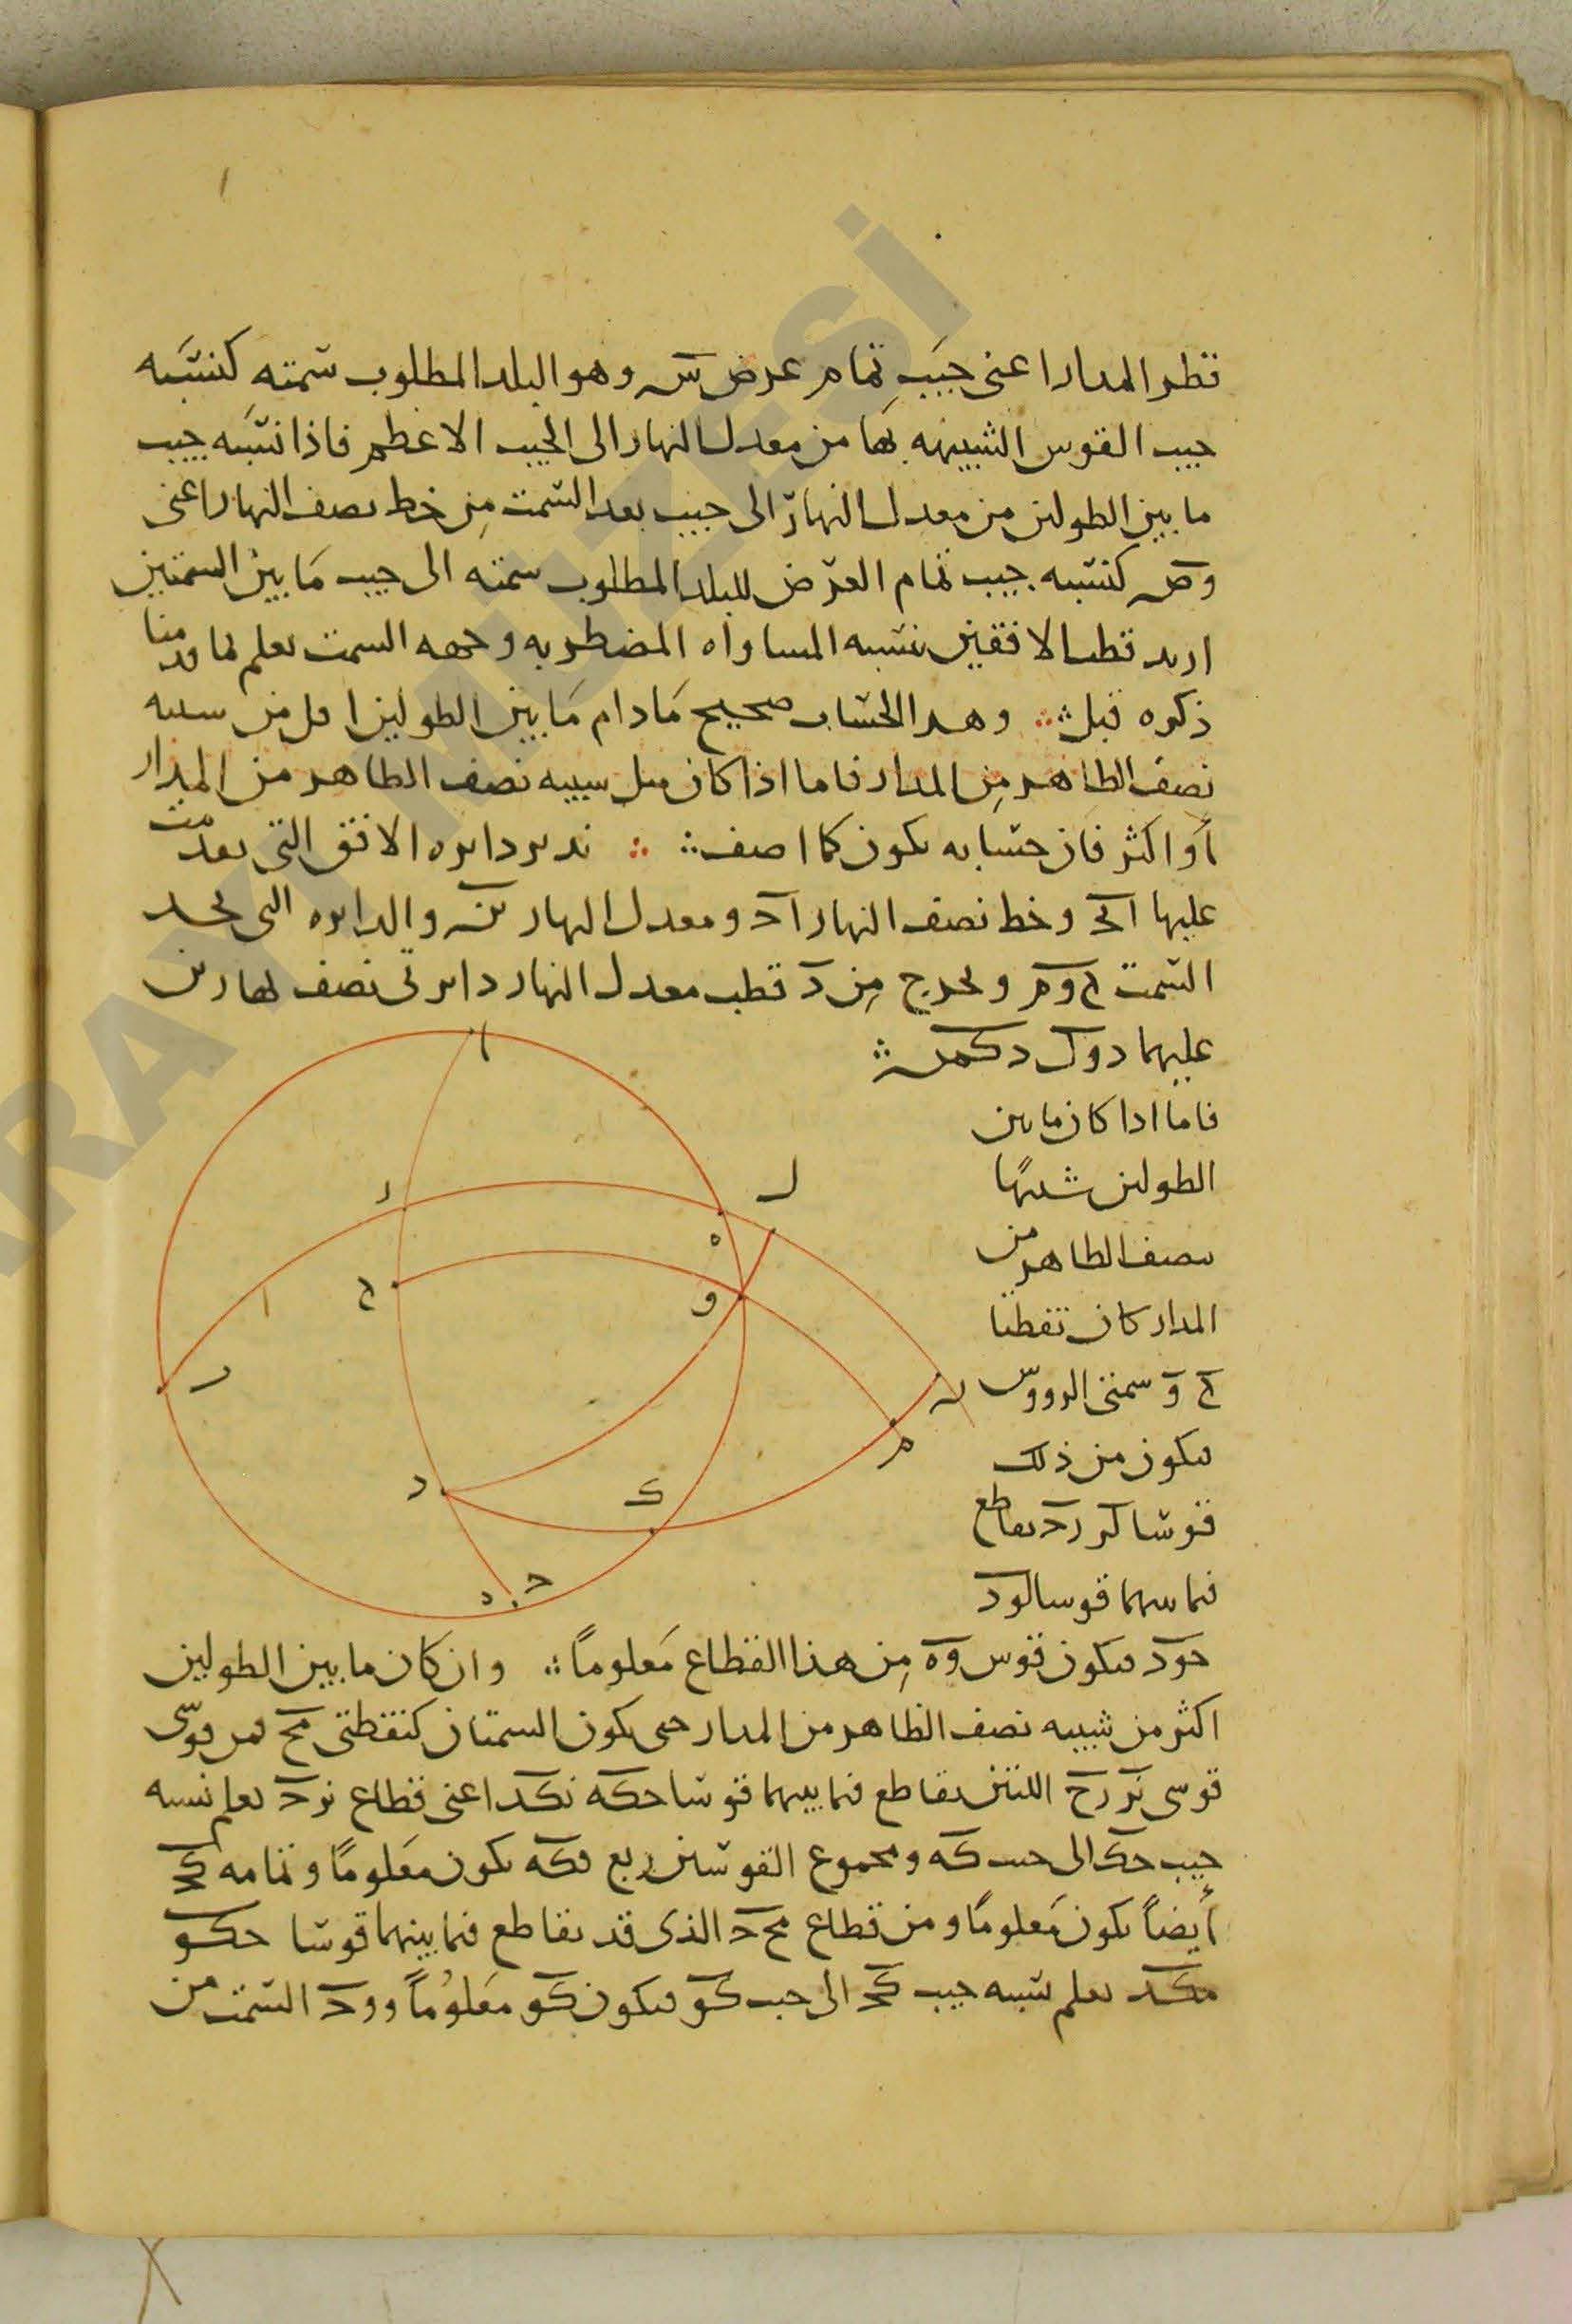 قطر المدار اعنى جيب تمام عرض س وهو البلد المطلوب سمته كنسبه
جيب القوس الشبيهه بها من معدل النهار الى الجيب الاعظم فاذا نسبه جيب
ما بين الطولين من معدل النهار الى جيب بعد السمت من خط نصف النهار اعنى
وص كنسبه جيب تمام العرض للبلد المطلوب سمته الى جيب ما بين السمتين
اريد قطب الافقين بنسبه المساواه المضطربه وجهه السمت تعلم لما قدمنا
ذكره قبل وهذا الحساب صحيح مادام ما بين الطولين اقل من شبيه
نصف الظاهر من المدار فاما اذا كان مثل شبيه نصف الظاهر من المدار
أو اكثر فان حسابه يكون كما اصف ندير دايره الافق التى بعدت
عليها اكح وخط نصف النهار اح ومعدل النهار والدايره التى تحد
السمت ح و م ونخرج من د قطب معدل النهار دايرتى نصف نهارين
عليهما دول دكمن
فاما اذا كان ما بين
الطولين شبيها
بنصف الظاهر من
المدار كان نقطتا
ح و سمتى الرووس
فيكون من ذلك
قوسا لر رح تقاطع
فيما بينهما قوسا لود
حود فيكون قوس وه من هذا القطاع معلوماً وان كان ما بين الطولين
اكثر من شبيه نصف الظاهر من المدار حتى يكون السمتان كنقطتى مح فمن قوسى
قوسى نر رح اللتين تقاطع فيما بينهما قوسا حكه نكد اعنى قطاع نرح تعلم نسبه
جيب حك الى جيب كه ومجموع القوسين ربع فكه يكون معلوماً وتمامه كح
أيضاً يكون معلوماً ومن قطاع مح د الذى قد تقاطع فيما بينهما قوسا حكو
مكد تعلم نسبه جيب كح الى جيب كو فيكون كو معلوماً ووح السمت من
ا
ر
ل
ه
ح
و
ر
ن
م
د
ك
ح
د